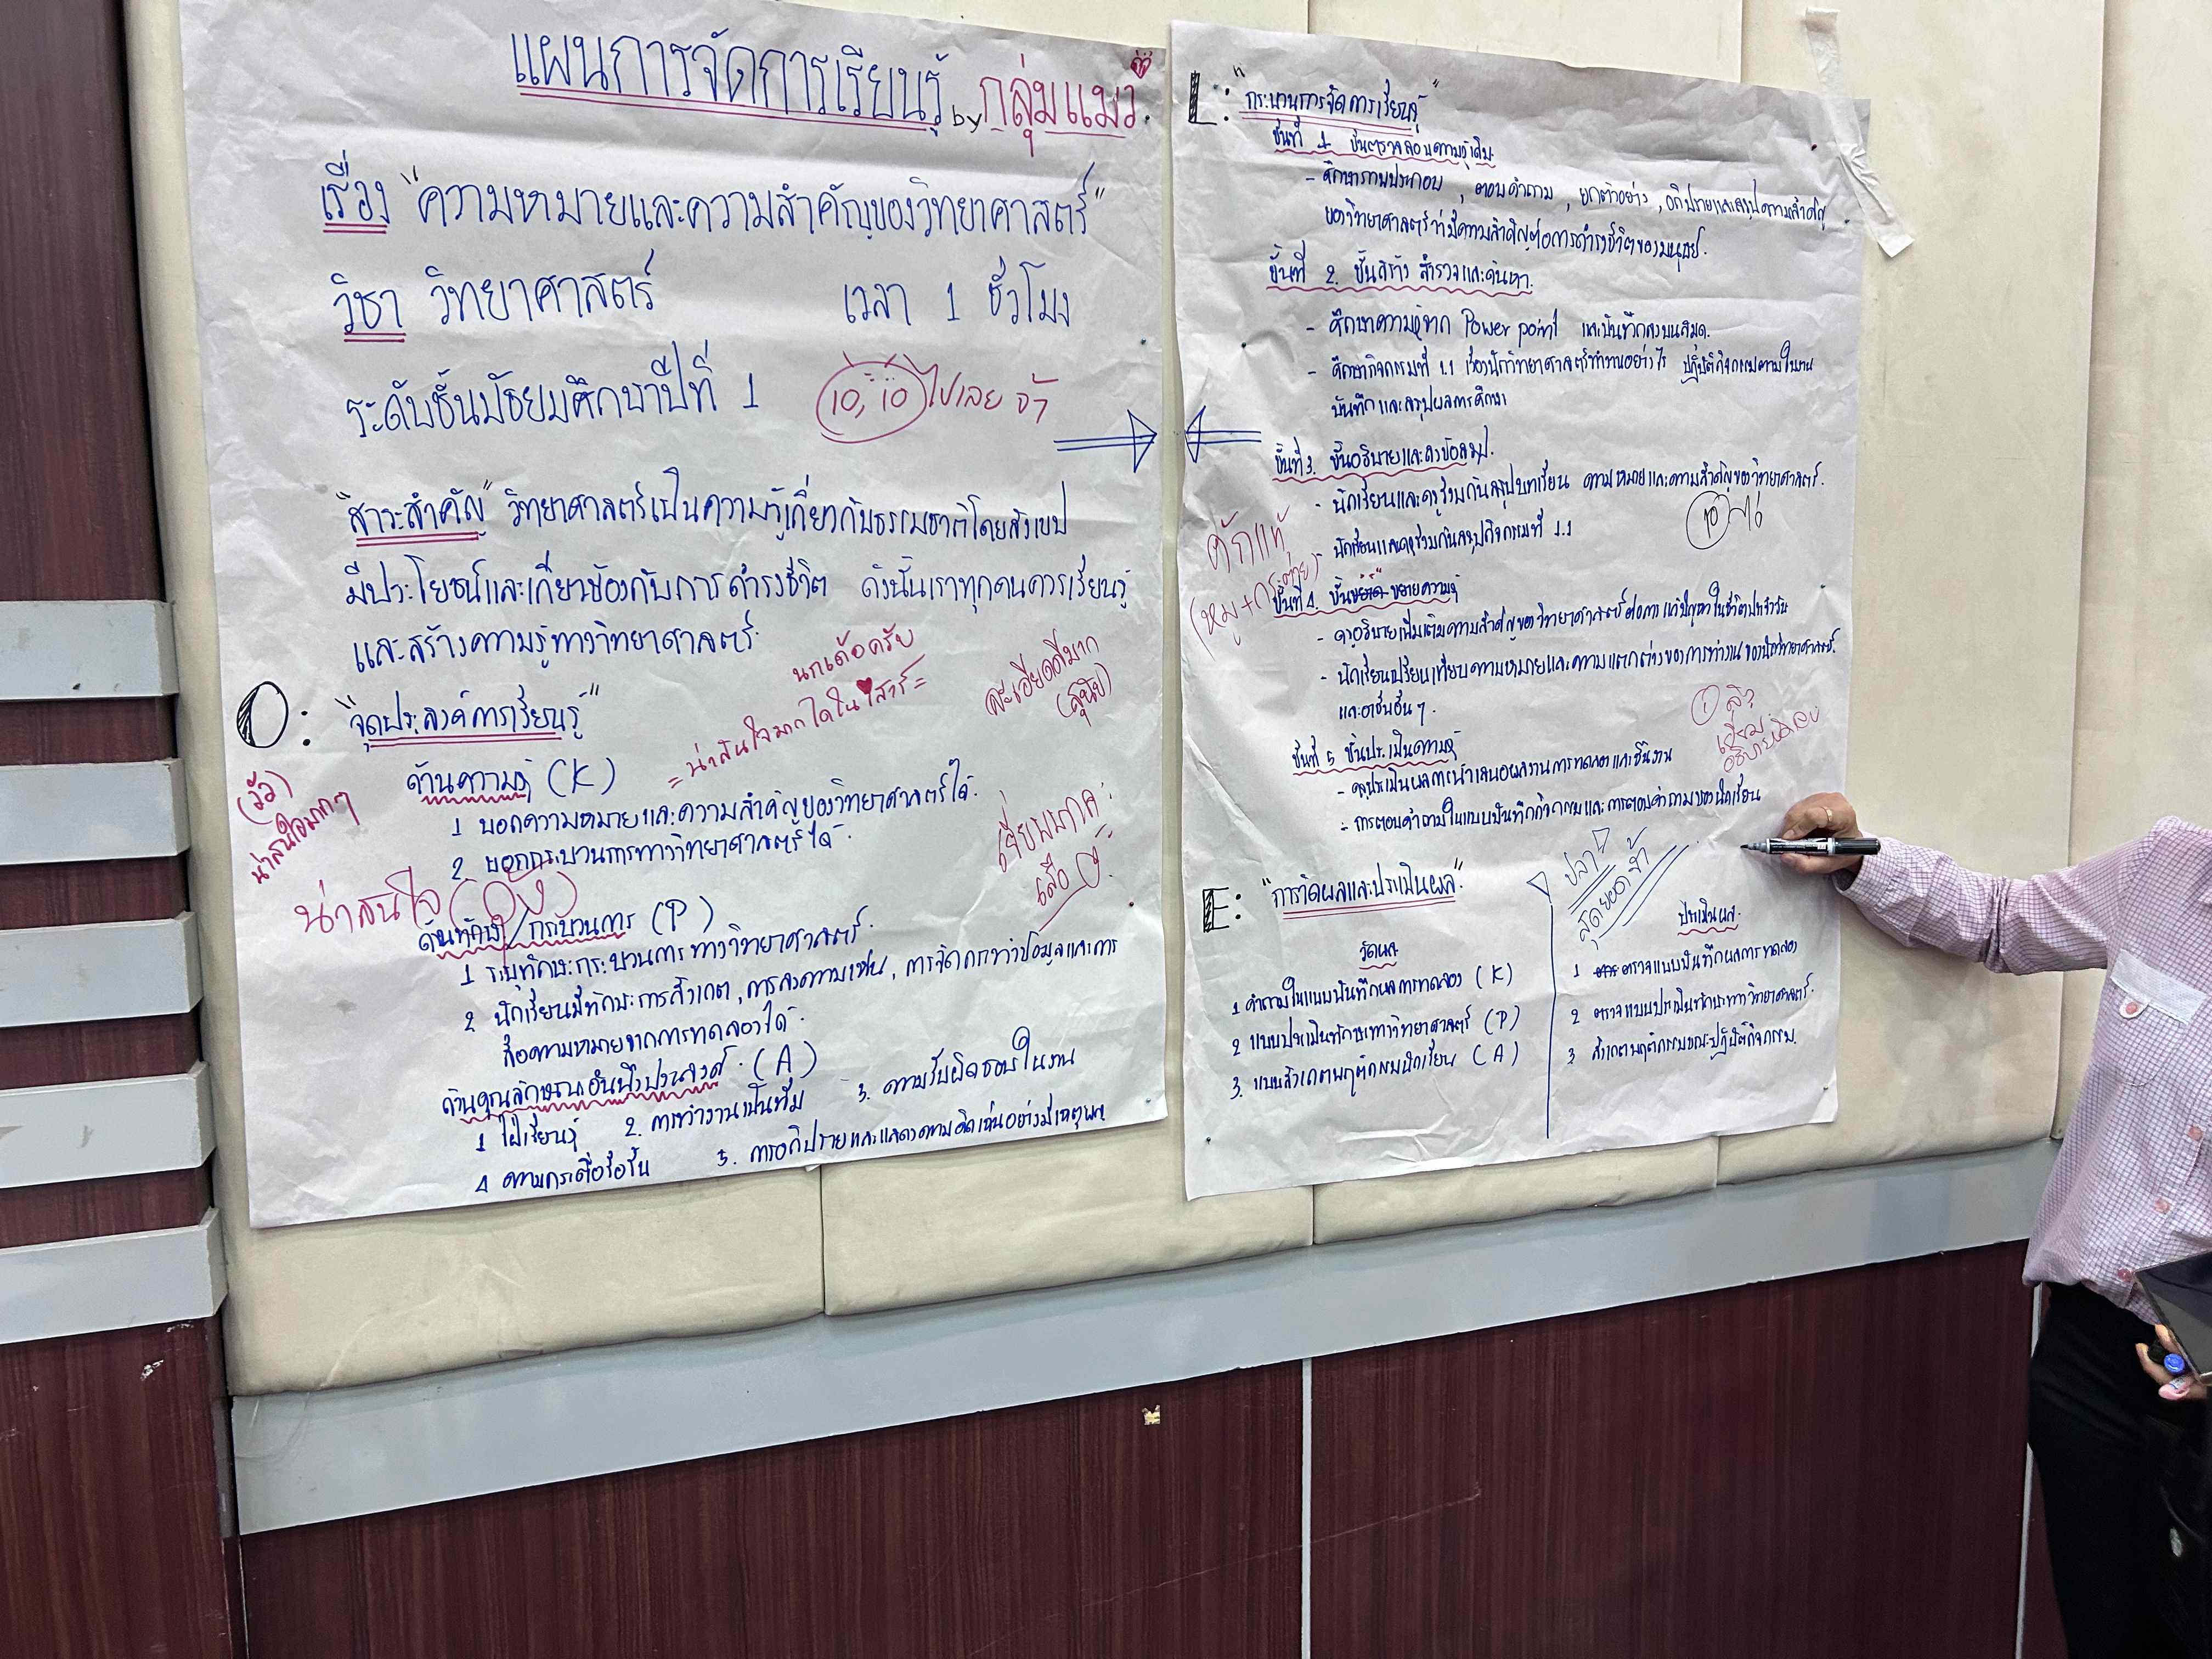 แผนการจัดการเรียนรู้ by กลุ่มแมว
เรื่อง "ความหมายและความสำคัญของวิทยาศาสตร์"
วิชา วิทยาศาสตร์ เวลา 1 ชั่วโมง
ระดับชั้นมัธยมศึกษาปีที่ 1
10, 10 ไปเลย จ้า
"สาระสำคัญ" วิทยาศาสตร์เป็นความรู้เกี่ยวกับธรรมชาติโดยสังเขป
มีประโยชน์และเกี่ยวข้องกับการดำรงชีวิต ดังนั้นเราทุกคนควรเรียนรู้
และสร้างความรู้ทางวิทยาศาสตร์
นกเด้อครับ
= น่าสนใจมาก
ละเอียดดีมาก
O: "จุดประสงค์การเรียนรู้"
(วัว)
น่าสนใจมากๆ
ด้านความรู้ (K)
1 บอกความหมายและความสำคัญของวิทยาศาสตร์ได้
2. บอกกระบวนการทางวิทยาศาสตร์ได้
น่าสนใจ
เสือ
ด้านทักษะ/กระบวนการ (P)
1 ระบุทักษะกระบวนการทางวิทยาศาสตร์
2 นักเรียนมีทักษะการสังเกต, การลงความเห็น, การจัดกระทำข้อมูลและการ
สื่อความหมายจากการทดลองได้
ด้านคุณลักษณะอันพึงประสงค์ (A)
1 ใฝ่เรียนรู้ 2. การทำงานเป็นทีม 3. ความรับผิดชอบในงาน
4 ความกระตือรือร้น 5. การอภิปรายและแสดงความคิดเห็นอย่างมีเหตุผล
L: "กระบวนการจัดการเรียนรู้"
ขั้นที่ 1 ขั้นตรวจสอบความรู้เดิม
- ศึกษาภาพประกอบ, ตอบคำถาม, ยกตัวอย่าง, อภิปรายและสรุปความสำคัญ
ของวิทยาศาสตร์ว่ามีความสำคัญต่อการดำรงชีวิตของมนุษย์.
ขั้นที่ 2. ขั้นสร้าง สำรวจและค้นหา.
- ศึกษาความรู้จาก Power point และบันทึกลงบนสมุด.
- ศึกษากิจกรรมที่ 1.1 เรื่องนักวิทยาศาสตร์ทำงานอย่างไร ปฏิบัติกิจกรรมตามใบงาน
บันทึกและสรุปผลการศึกษา
ขั้นที่ 3. ขั้นอธิบายและลงข้อสรุป.
- นักเรียนและครูร่วมกันสรุปบทเรียน ความหมายและความสำคัญของวิทยาศาสตร์.
- นักเรียนและครูร่วมกันสรุปกิจกรรมที่ 1.1
10
(หมู+กระต่าย)
ขั้นที่ 4. ขั้นขยายความรู้
- ครูอธิบายเพิ่มเติมความสำคัญของวิทยาศาสตร์ต่อการแก้ปัญหาในชีวิตประจำวัน
- นักเรียนเปรียบเทียบความหมายและความแตกต่างของการทำงานของนักวิทยาศาสตร์
และอาชีพอื่นๆ.
ขั้นที่ 5 ขั้นประเมินความรู้
- ครูประเมินผลการนำเสนอผลงานการทดลองและชิ้นงาน
- การตอบคำถามในแบบบันทึกกิจกรรมและการตอบคำถามของนักเรียน
ปลา
สุดยอดจ้า
E: "การวัดผลและประเมินผล"
วัดผล
1 คำถามในแบบบันทึกผลการทดลอง (K)
2 แบบประเมินทักษะทางวิทยาศาสตร์ (P)
3. แบบสังเกตพฤติกรรมนักเรียน (A)
ประเมินผล
1 ตรวจแบบบันทึกผลการทดลอง
2 ตรวจแบบประเมินทักษะทางวิทยาศาสตร์.
3 สังเกตพฤติกรรมขณะปฏิบัติกิจกรรม.